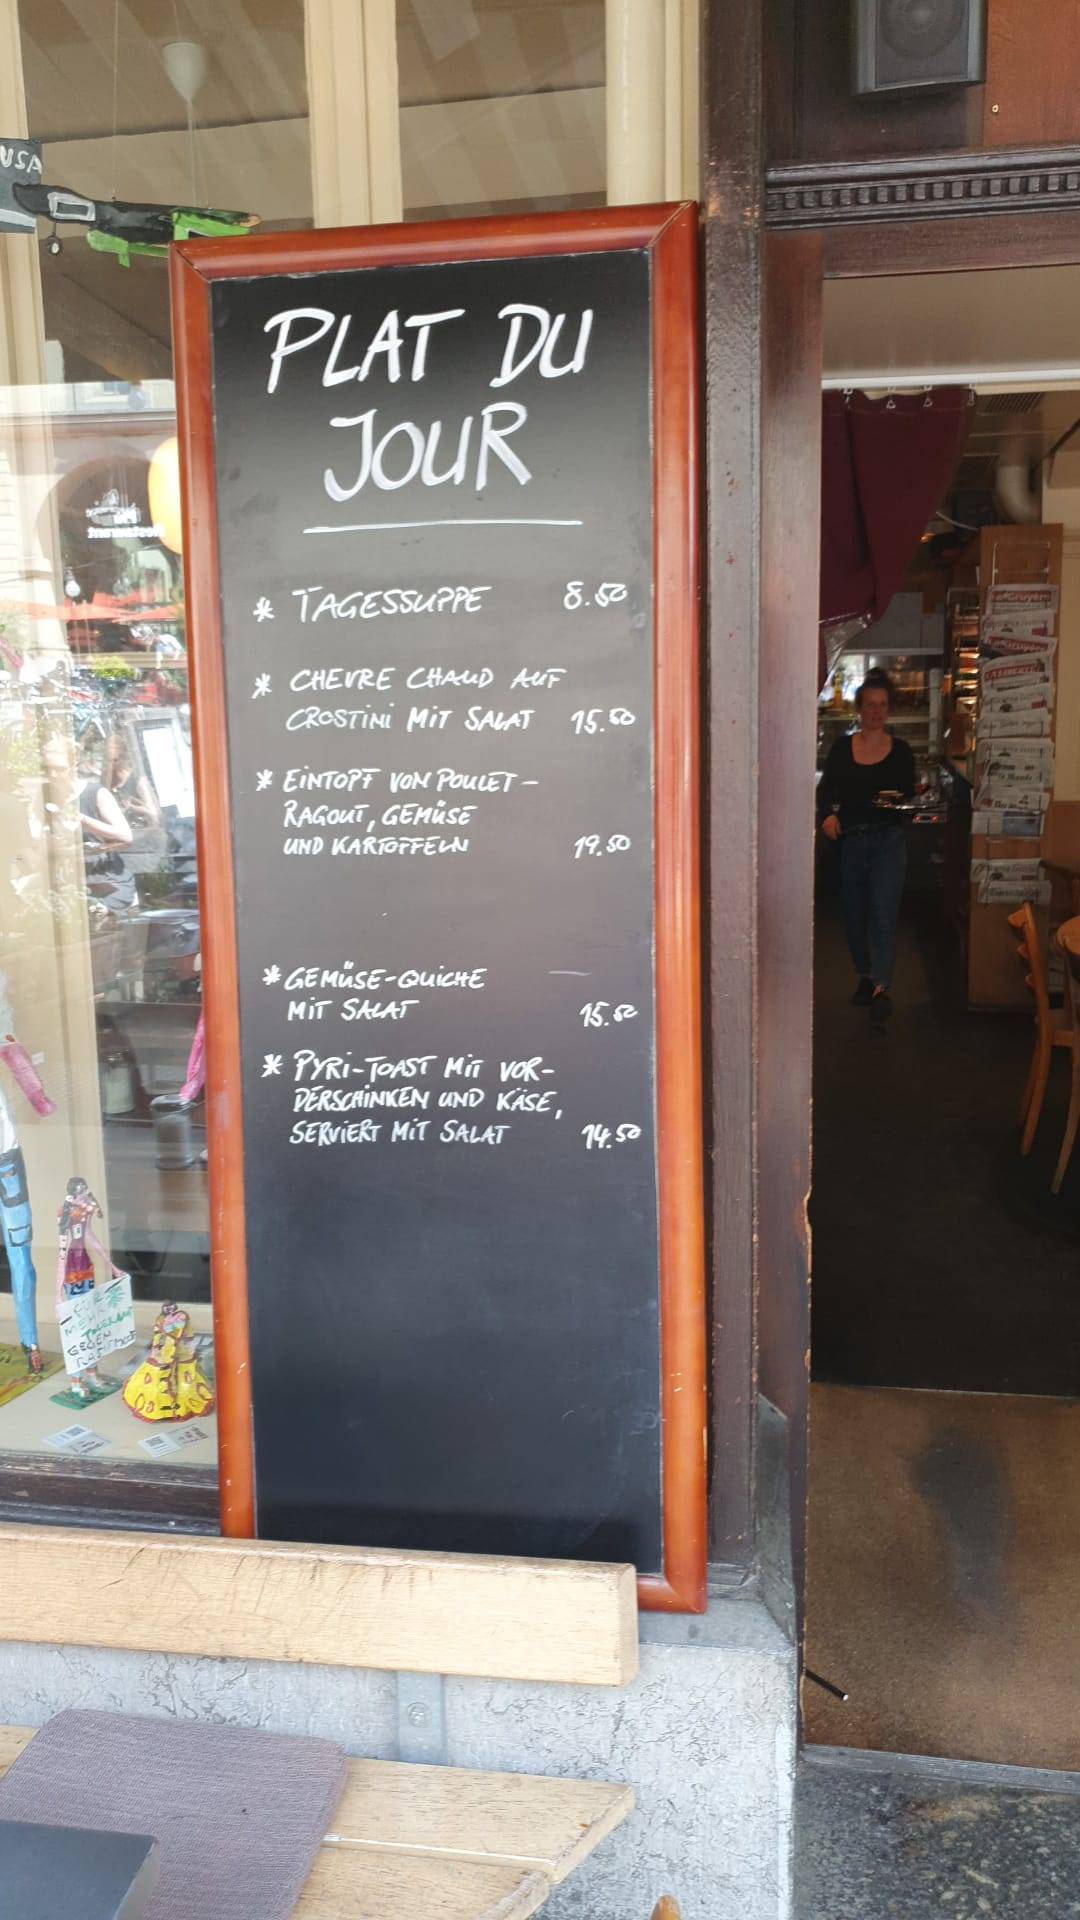 USA
PLAT DU
JOUR
* TAGESSUPPE 8.50
* CHEVRE CHAUD AUF
CROSTINI MIT SALAT 15.50
* EINTOPF VON POULET-
RAGOUT, GEMÜSE
UND KARTOFFELN 19.50
* GEMÜSE-QUICHE
MIT SALAT 15.50
* PYRI-TOAST MIT VOR-
DERSCHINKEN UND KÄSE,
SERVIERT MIT SALAT 14.50
FÜR
MEHR
TOLERANZ
GEGEN
La Gruyère
Le Monde